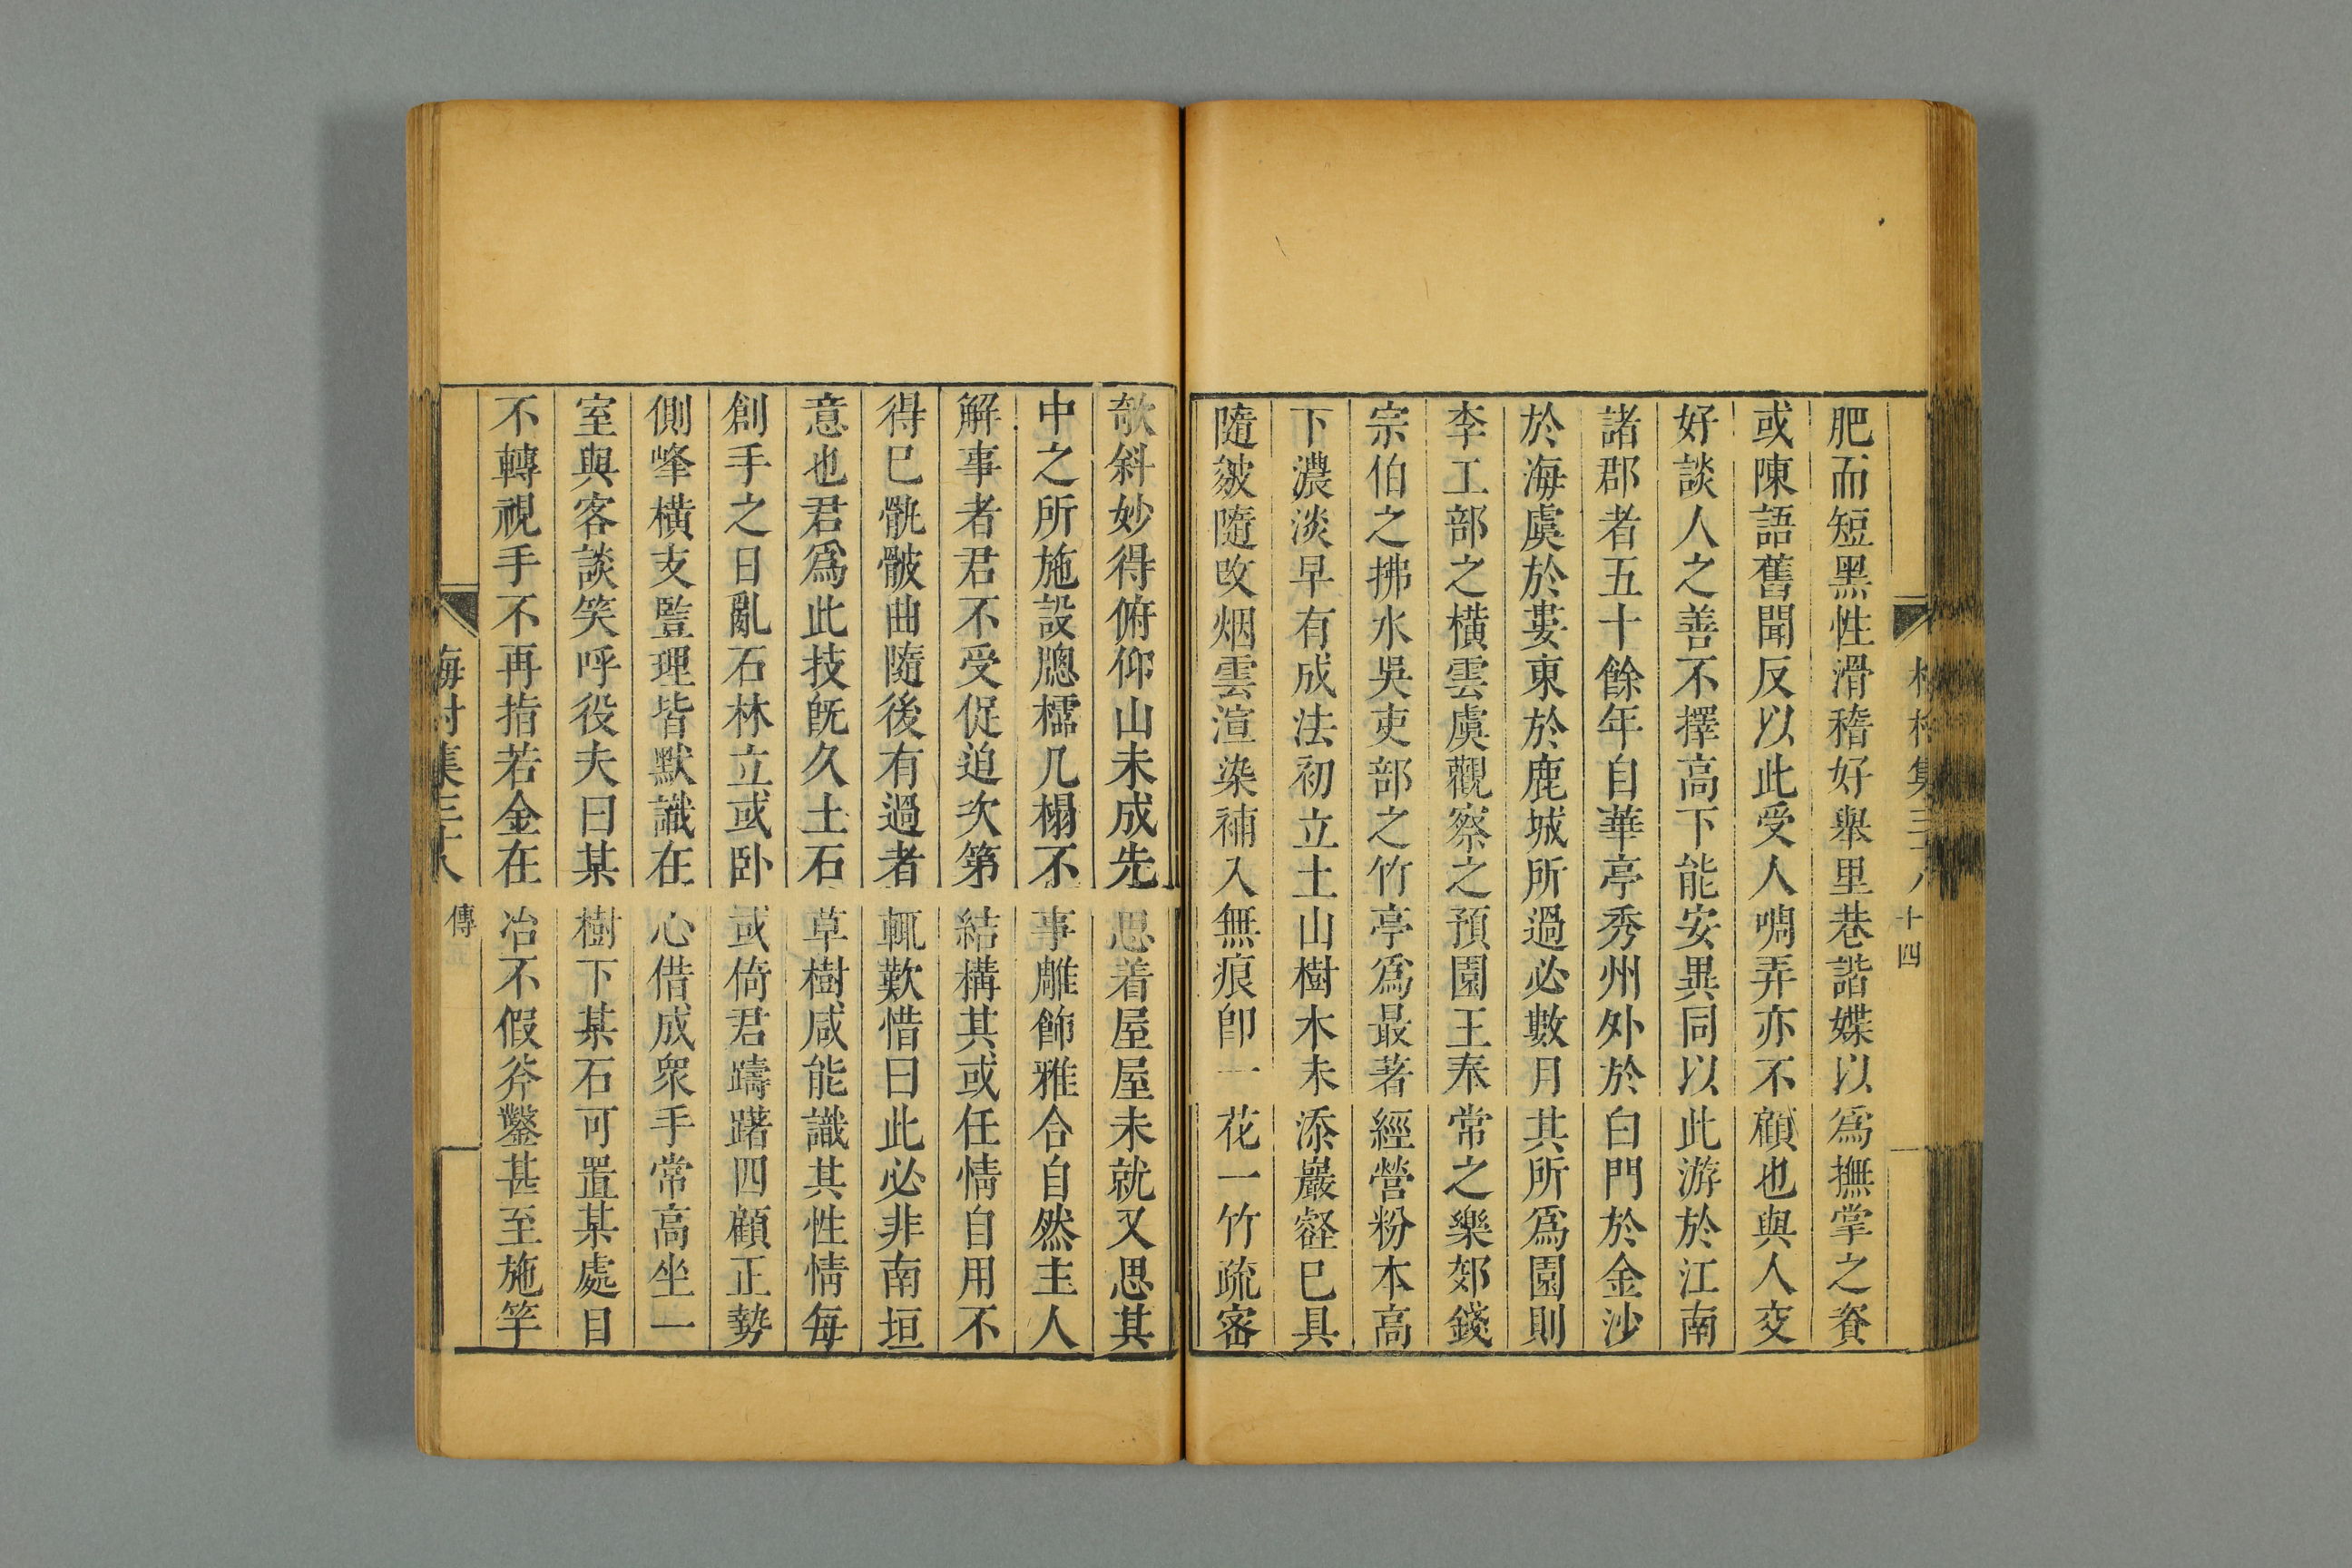 肥而短黑性滑稽好舉里巷諧媟以爲撫掌之資
或陳語舊聞反以此受人啁弄亦不顧也與人交
好談人之善不擇高下能安異同以此游於江南
諸郡者五十餘年自華亭秀州外於白門於金沙
於海虞於婁東於鹿城所過必數月其所爲園則
李工部之横雲虞觀察之預園王奉常之樂郊錢
宗伯之拂水吳吏部之竹亭爲最著經營粉本高
下濃淡早有成法初立土山樹木未添巖壑巳具
隨皴隨改烟雲渲染補入無痕卽一花一竹疏密
欹斜妙得俯仰山未成先思着屋屋未就又思其
中之所施設牕櫺几榻不事雕飾雅合自然主人
解事者君不受促迫次第結構其或任情自用不
得巳骫骳曲隨後有過者輒歎惜曰此必非南垣
意也君爲此技旣久土石草樹咸能識其性情每
創手之日亂石林立或卧或倚君躊躇四顧正勢
側峰横支豎理皆默識在心借成衆手常高坐一
室與客談笑呼役夫曰某樹下某石可置某處目
不轉視手不再指若金在冶不假斧鑿甚至施竿
傳
十四